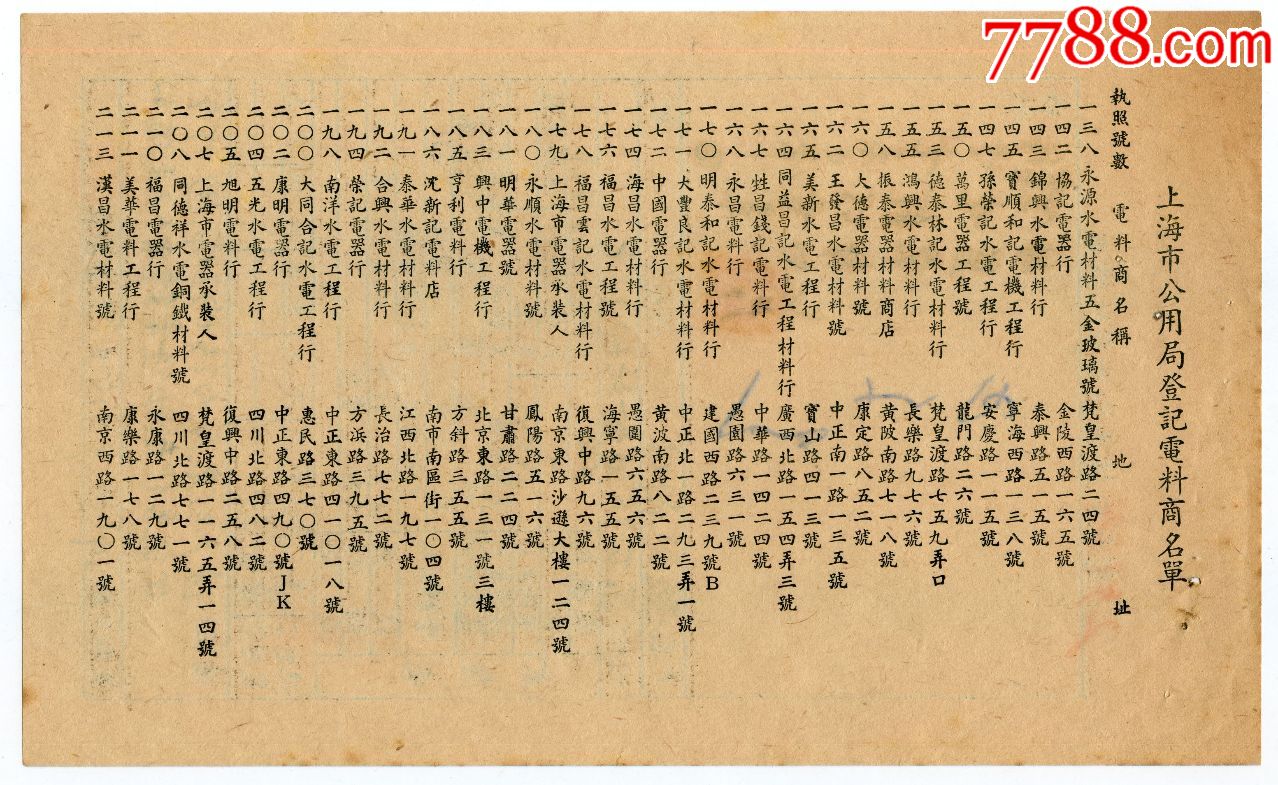 7788.com
上海市公用局登記電料商名單
執照號數 電料商名稱 地址
一三八 永源水電材料五金玻璃號 梵皇渡路二四號
一四二 協記電器行 金陵西路一六五號
一四三 錦興水電材料行 泰興路五一五號
一四五 寶順和記電機工程行 寧海西路一三八號
一四七 孫榮記水電工程行 安慶路一一五號
一五〇 萬里電器工程號 龍門路二六號
一五三 德泰林記水電材料行 梵皇渡路七五九弄口
一五五 鴻興水電材料行 長樂路九七六號
一五八 振泰電器材料商店 黄陂南路七一八號
一六〇 大德電器材料行 康定路八五二號
一六二 王發昌水電材料號 中正南一路一三五號
一六五 美新水電工程行 寶山路四一三號
一六四 同益昌記水電工程材料行 廣西北路一五四弄三號
一六七 甡昌錢記電料行 中華路一四二四號
一六八 永昌電料行 愚園路六三一號
一七〇 明泰和記水電材料行 建國西路二三九號B
一七一 大豐良記水電材料行 中正北一路二九三弄一號
一七二 中國電器行 黄波南路八二二號
一七四 海昌水電料行 愚園路六五六號
一七六 福昌水電工程號 海寧路一一五五號
一七八 福昌雲記水電材料行 復興中路九六號
一七九 上海市電器承裝人 南京東路沙遜大樓一二四號
一八〇 永順水電材料號 鳳陽路五一六號
一八一 明華電器號 甘肅路二二四號
一八三 興中電機工程行 北京東路一三一號三樓
一八五 亨利電料行 方斜路三五五號
一八六 沈新記電料店 南市南區街一〇四號
一九一 泰華水電材料行 江西北路一九七號
一九二 合興水電材料行 長治路七七二號
一九四 榮記電料行 方浜路三九五號
一九八 南洋水電工程行 中正東路四一〇一八號
二〇〇 大同合記水電工程行 惠民路三七〇號
二〇二 康明電器行 中正東路四九〇號JK
二〇四 五光水電工程行 四川北路四八二號
二〇五 旭明電料行 復興中路二五八號
二〇七 上海市電器承裝人 梵皇渡路一一六五弄一四號
二〇八 同德祥水電銅鐵材料號 四川北路七七一號
二一〇 福昌電器行 永康路一二九號
二一一 美華電料工程行 康樂路一七八號
二一三 漢昌水電材料號 南京西路一九〇一號